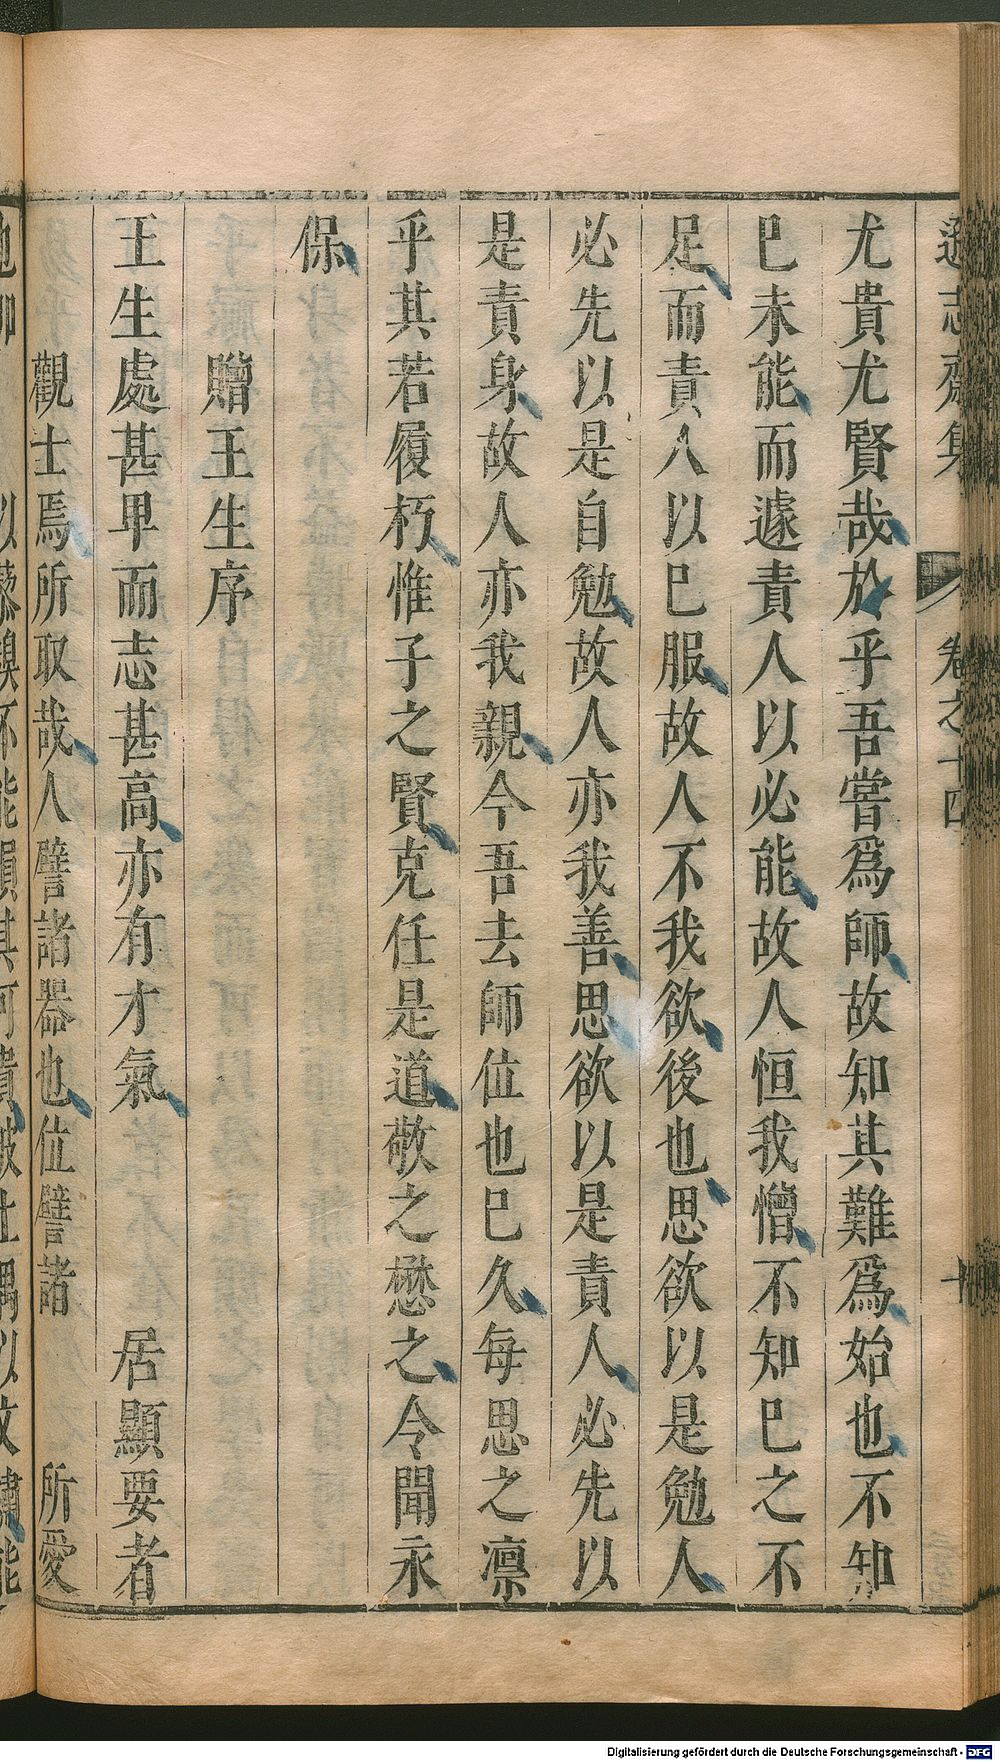 遜志齋集 卷之十四
尤貴尤賢哉於乎吾嘗爲師故知其難爲始也不知
巳未能而遽責人以必能故人恒我憎不知巳之不
足而責人以巳服故人不我欲後也思欲以是勉人
必先以是自勉故人亦我善思欲以是責人必先以
是責身故人亦我親今吾去師位也巳久每思之凛
乎其若履朽惟子之賢克任是道敬之懋之令聞永
保
贈王生序
王生處甚卑而志甚高亦有才氣 居顯要者
觀士焉所取哉人譬諸器也位譬諸 所愛
Digitalisierung gefördert durch die Deutsche Forschungsgemeinschaft - DFG